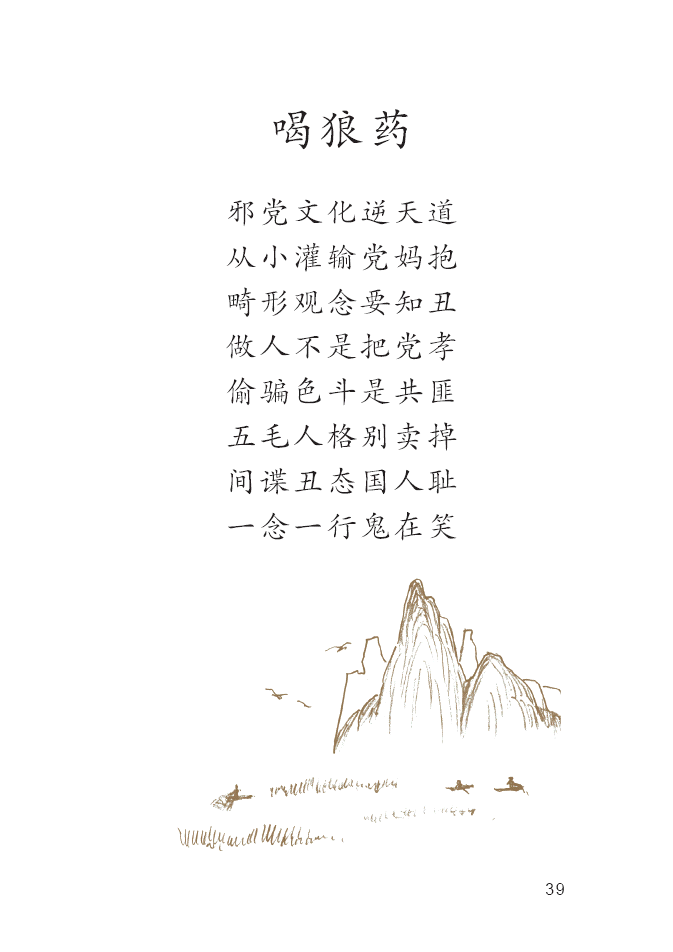 喝狼药
邪党文化逆天道
从小灌输党妈抱
畸形观念要知丑
做人不是把党孝
偷骗色斗是共匪
五毛人格别卖掉
间谍丑态国人耻
一念一行鬼在笑
39